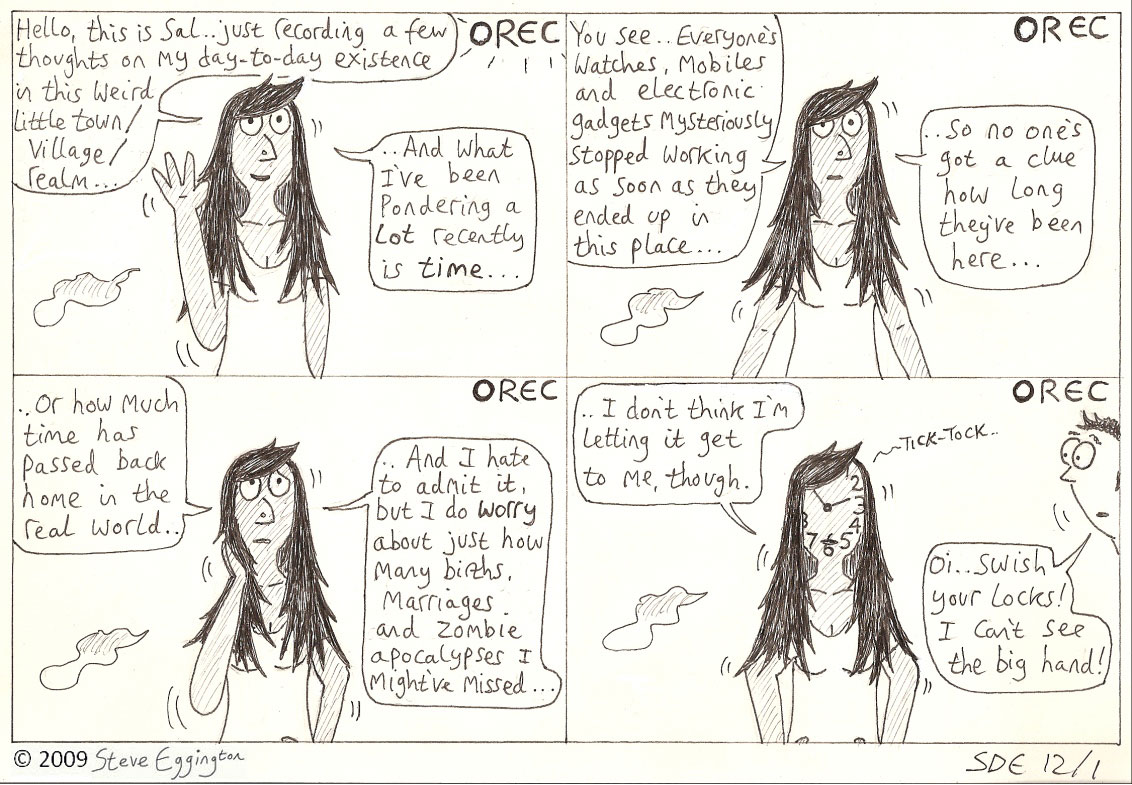 Hello, this is Sal..just recording a few
thoughts on my day-to-day existence
in this weird
little town/
village/
realm...
OREC
..And what
I've been
pondering a
lot recently
is time....
You see.. Everyone's
watches, mobiles
and electronic
gadgets mysteriously
stopped working
as soon as they
ended up in
this place...
OREC
..So no one's
got a clue
how long
they've been
here...
..Or how much
time has
passed back
home in the
real world..
OREC
.. And I hate
to admit it,
but I do worry
about just how
many births,
marriages
and zombie
apocalypses I
might've missed...
.. I don't think I'm
letting it get
to me, though.
OREC
~TICK-TOCK..
2
3
4
5
6
7
8
Oi..swish
your locks!
I can't see
the big hand!
© 2009 Steve Eggington
SDE 12/1